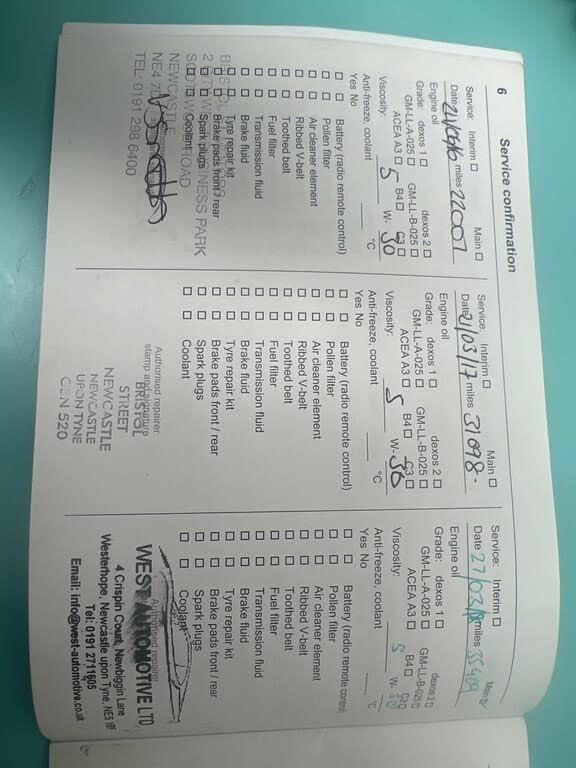 6
Service confirmation
Service: Interim ☐ Main ☐
Date miles 22007
Engine oil
Grade: dexos 1 ☐ dexos 2 ☐
GM-LL-A-025 ☐ GM-LL-B-025 ☐
ACEA A3 ☐ B4 ☐ C3 ☐
Viscosity: 5 W- 30
Anti-freeze, coolant °C
Yes No
☐ ☐ Battery (radio remote control)
☐ ☐ Pollen filter
☐ ☐ Air cleaner element
☐ ☐ Ribbed V-belt
☐ ☐ Toothed belt
☐ ☐ Fuel filter
☐ ☐ Transmission fluid
☐ ☐ Brake fluid
☐ ☐ Tyre repair kit
☐ ☐ Brake pads front / rear
☐ ☐ Spark plugs
☐ ☐ Coolant
BRISTOL
NESS PARK
ROAD
NEWCASTLE
NE4 7
TEL: 0191 298 6400
Service: Interim ☐ Main ☐
Date 21/03/17 miles 31098-
Engine oil
Grade: dexos 1 ☐ dexos 2 ☐
GM-LL-A-025 ☐ GM-LL-B-025 ☐
ACEA A3 ☐ B4 ☐ C3 ☐
Viscosity: 5 W- 30
Anti-freeze, coolant °C
Yes No
☐ ☐ Battery (radio remote control)
☐ ☐ Pollen filter
☐ ☐ Air cleaner element
☐ ☐ Ribbed V-belt
☐ ☐ Toothed belt
☐ ☐ Fuel filter
☐ ☐ Transmission fluid
☐ ☐ Brake fluid
☐ ☐ Tyre repair kit
☐ ☐ Brake pads front / rear
☐ ☐ Spark plugs
☐ ☐ Coolant
Authorised repairer
stamp and signature
BRISTOL
STREET
NEWCASTLE
NEWCASTLE
UPON TYNE
520
Service: Interim ☐ Main
Date 27/03/18 miles 35409
Engine oil
Grade: dexos 1 ☐ dexos 2 ☐
GM-LL-A-025 ☐ GM-LL-B-025 ☐
ACEA A3 ☐ B4 ☐ C3 ☐
Viscosity: 5 W- 30
Anti-freeze, coolant °C
Yes No
☐ ☐ Battery (radio remote control)
☐ ☐ Pollen filter
☐ ☐ Air cleaner element
☐ ☐ Ribbed V-belt
☐ ☐ Toothed belt
☐ ☐ Fuel filter
☐ ☐ Transmission fluid
☐ ☐ Brake fluid
☐ ☐ Tyre repair kit
☐ ☐ Brake pads front / rear
☐ ☐ Spark plugs
☐ ☐ Coolant
Authorised repairer
WEST AUTOMOTIVE LTD
4 Crispin Court, Newbiggin Lane
Westerhope, Newcastle upon Tyne, NE5 1BF
Tel: 0191 2711605
Email: info@west-automotive.co.uk